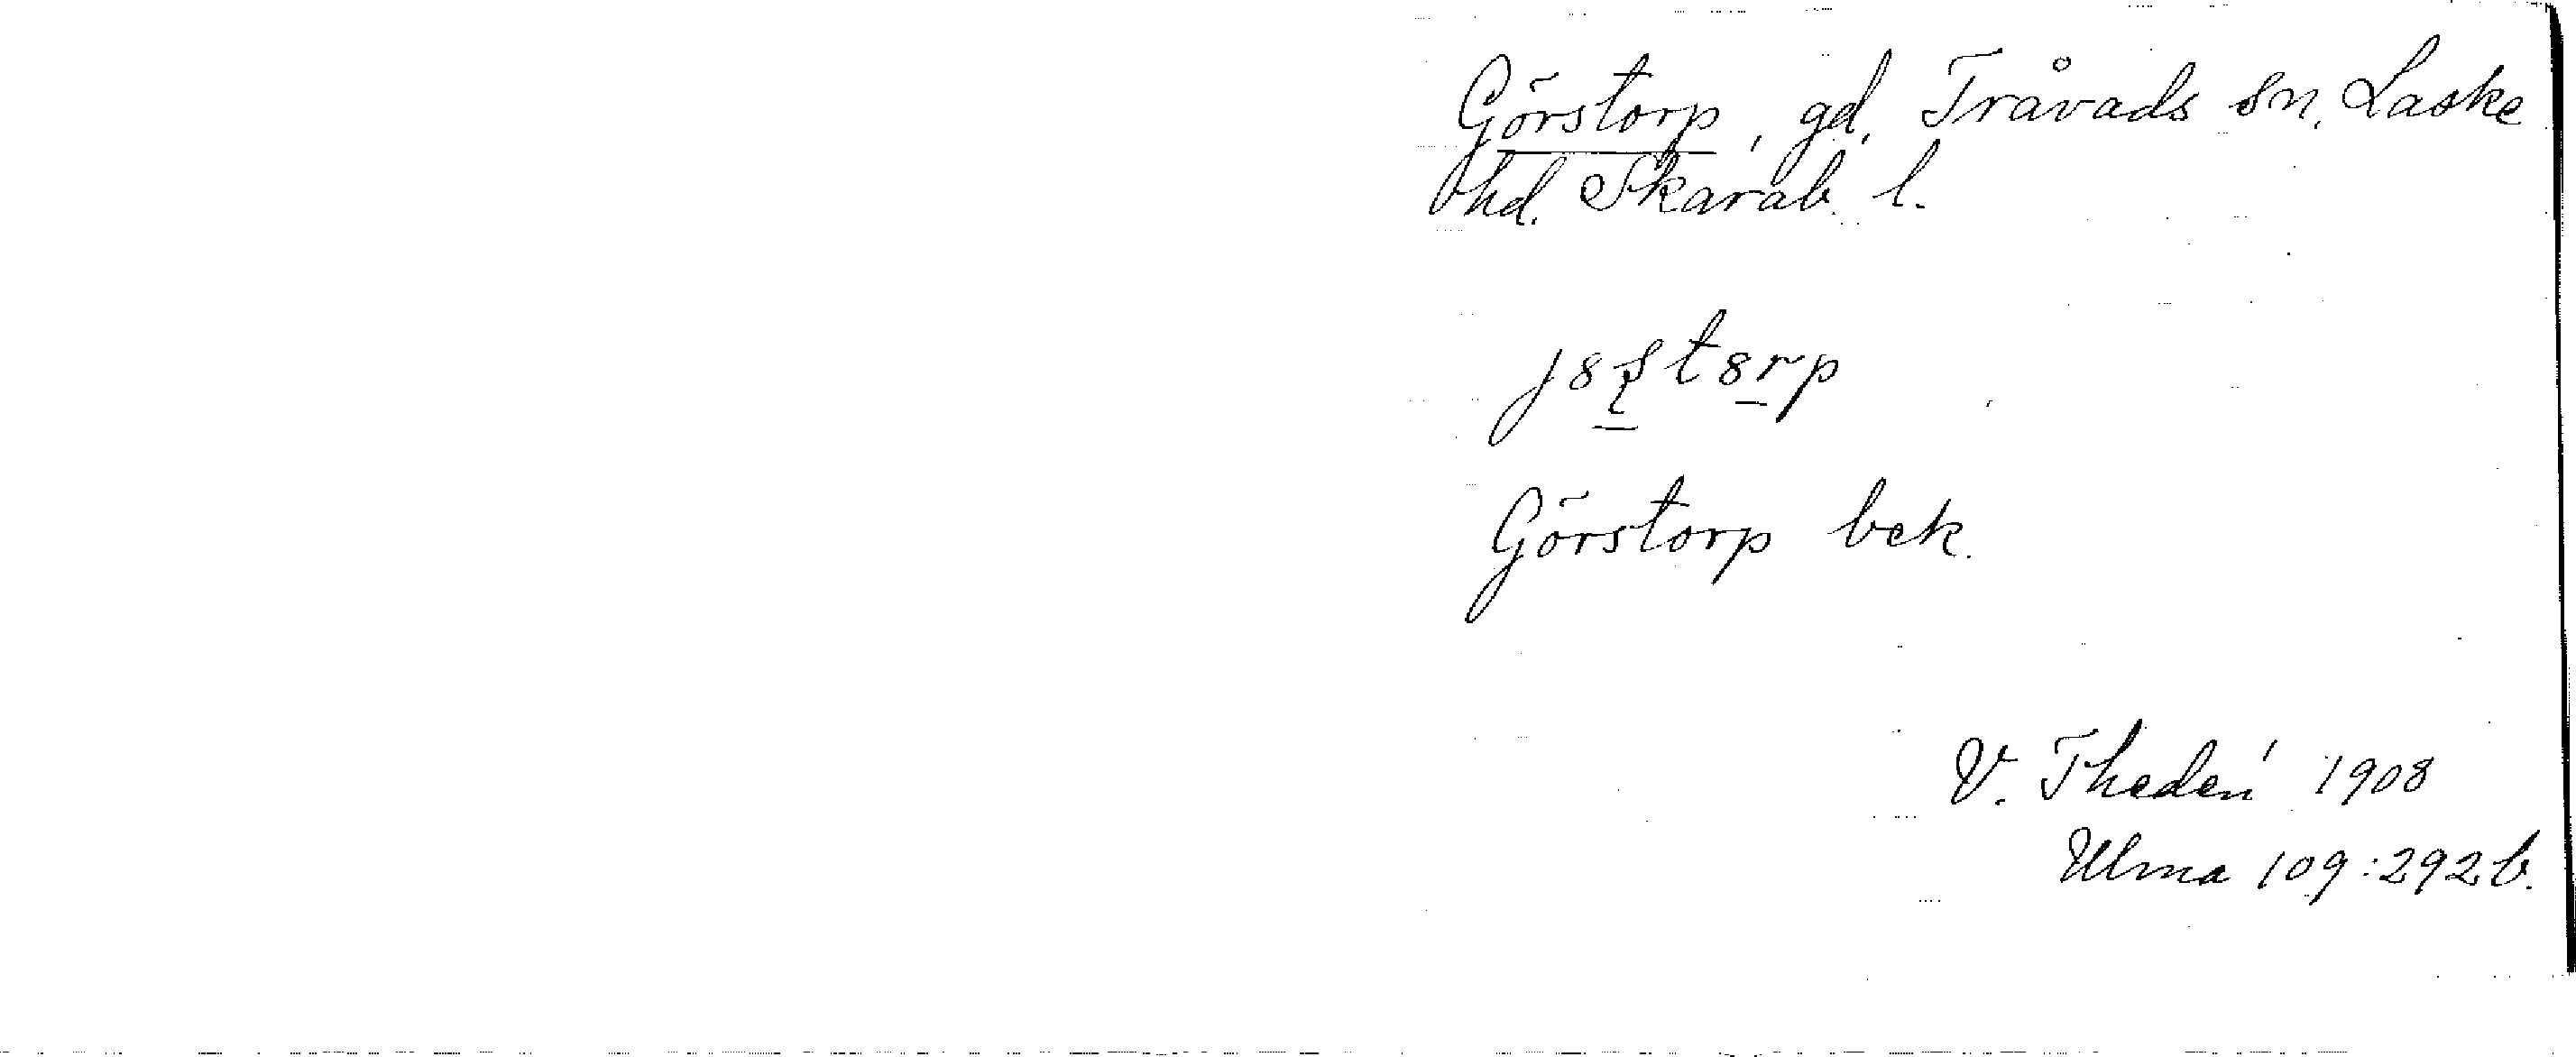 Görstorp, gd, Tråvads sn, Laske
hd. Skarab. l.
j8ʂt8rp
Görstorp bek.
V. Thedén 1908
Ulma 109:292 b.